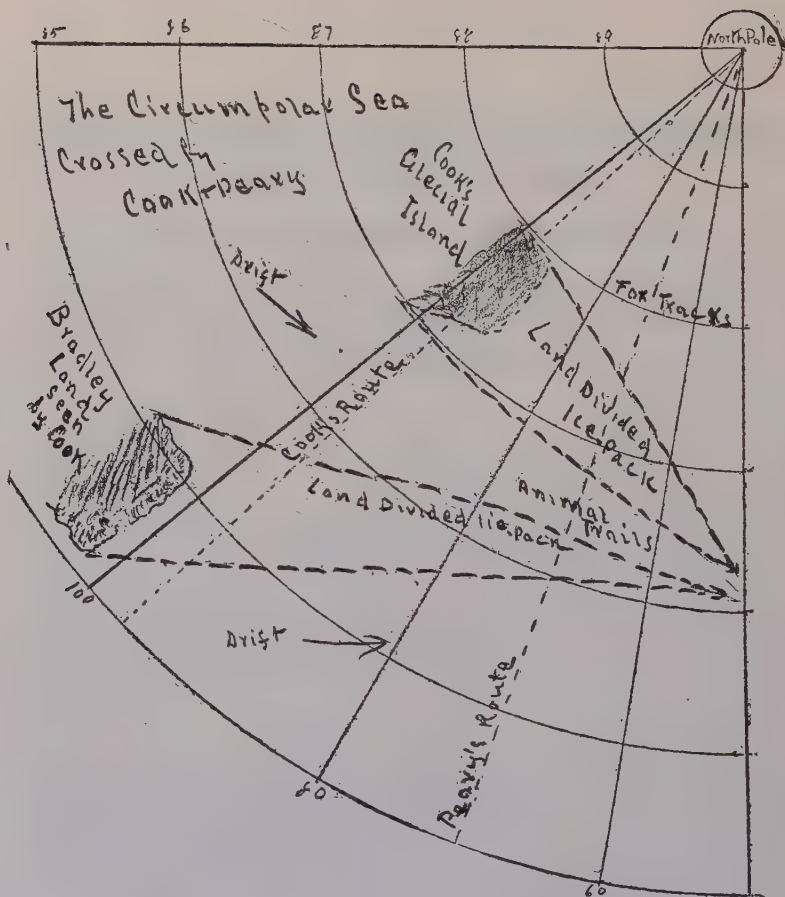 85
86
87
88
89
North Pole
The Circumpolar Sea
Crossed by
Cook-Peary
Cook's
Glacial
Island
Drift
Fox Tracks
Bradley
Land
seen
by Cook
Land Divided
Ice pack
Cook's Route
Animal
Trails
Land Divided Icepack
100
Drift
Peary's Route
80
60